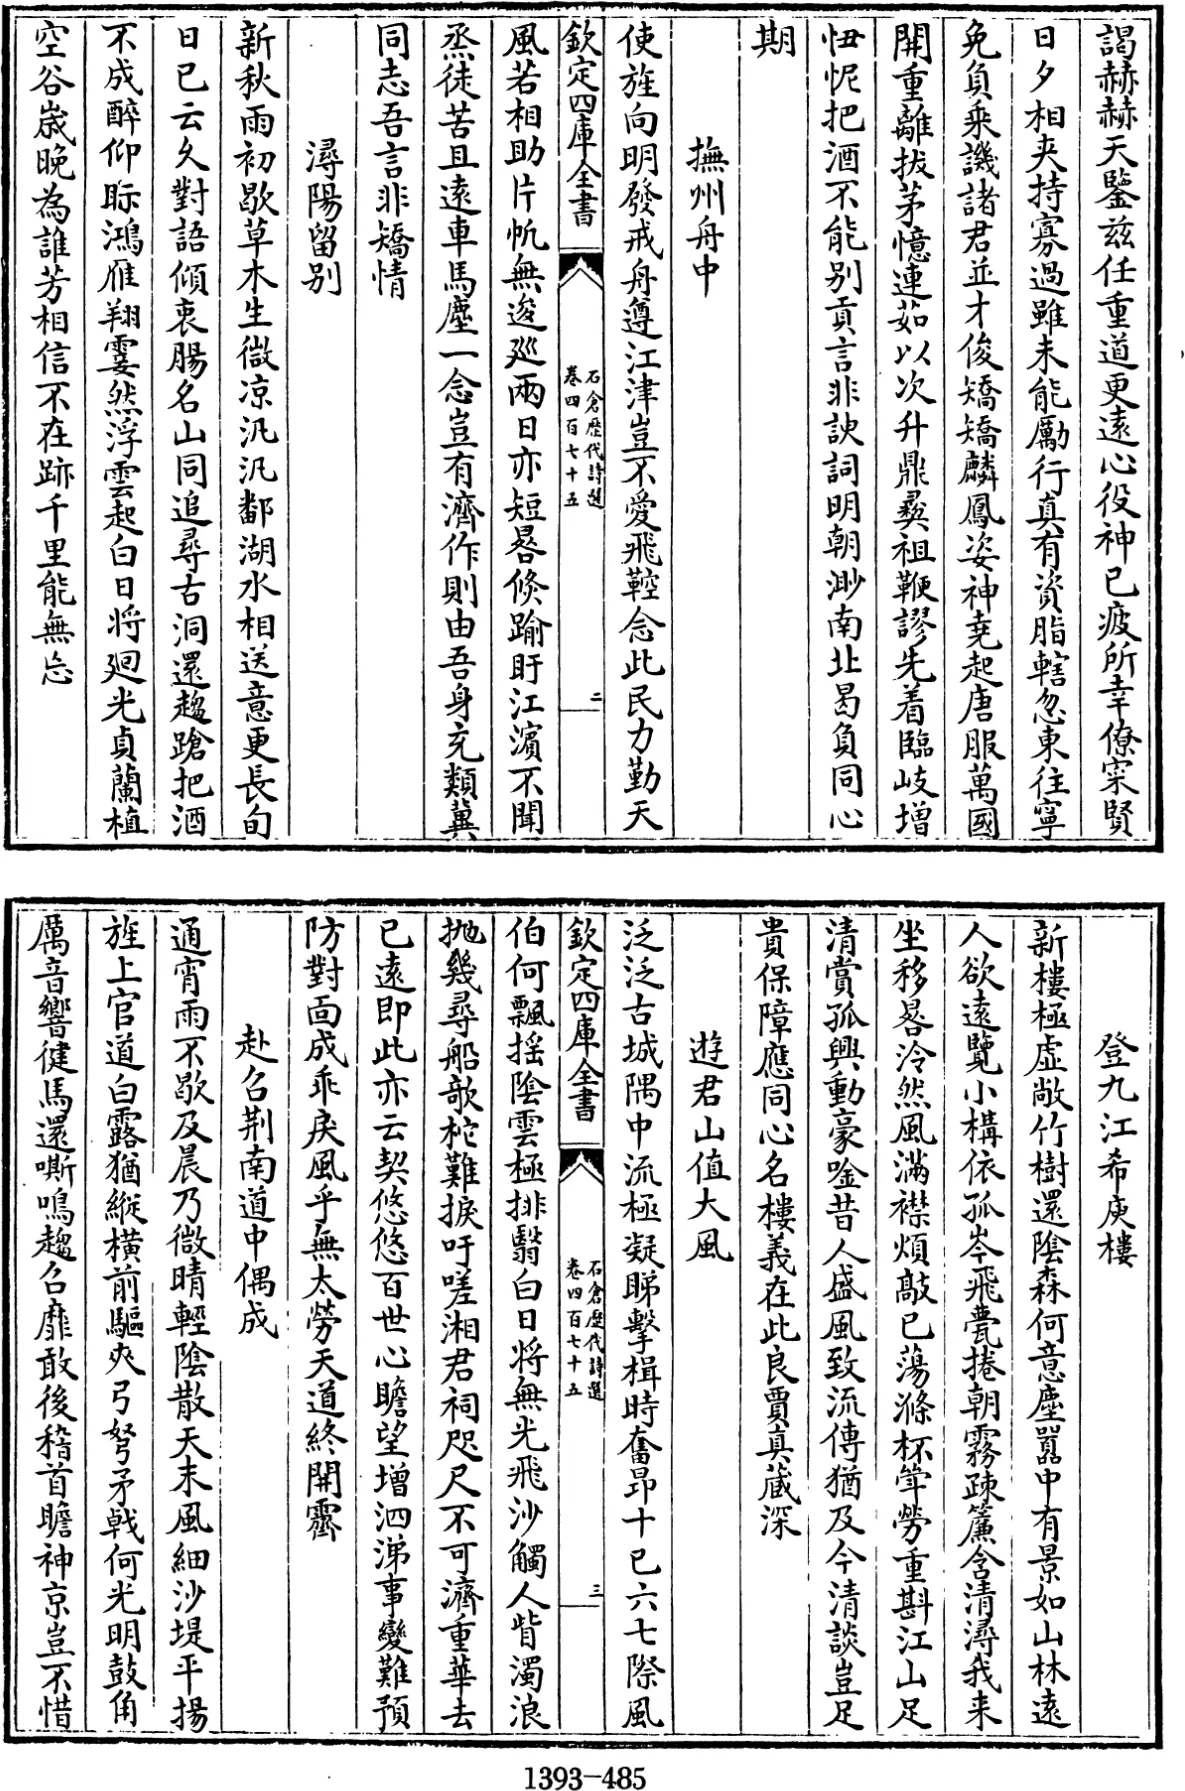 謁赫赫天鑒兹任重道更遠心役神已疲所幸僚寀賢
日夕相夾持寡過雖未能勵行真有資脂轄忽東往寧
免負乗譏諸君並才俊矯矯麟鳳姿神堯起唐服萬國
開重離拔茅憶連茹以次升鼎彛祖鞭謬先着臨岐增
忸怩把酒不能别貢言非諛詞明朝渺南北曷負同心
期
撫州舟中
使旌向明發戒舟遵江津豈不愛飛鞚念此民力勤天
欽定四庫全書
石倉歷代詩選
卷四百七十五
二
風若相助片帆無逡廵兩日亦短晷倐踰旴江濵不聞
烝徒苦且遠車馬塵一念豈有濟作則由吾身充類冀
同志吾言非矯情
潯陽留别
新秋雨初歇草木生微凉汎汎鄱湖水相送意更長旬
日已云久對語傾衷腸名山同追尋古洞還趨蹌把酒
不成醉仰眎鴻雁翔霎然浮雲起白日将廻光貞蘭植
空谷嵗晚為誰芳相信不在跡千里能無忘
登九江希庾樓
新樓極虚敞竹樹還陰森何意塵囂中有景如山林遠
人欲遠覽小構依孤岑飛甍捲朝霧疎簾含清潯我来
坐移晷泠然風滿襟煩敲已蕩滌杯斝勞重斟江山足
清賞孤興動豪唫昔人盛風致流傳猶及今清談豈足
貴保障應同心名樓義在此良賈真蔵深
遊君山值大風
泛泛古城隅中流極凝睇擊楫時奮昂十已六七際風
欽定四庫全書
石倉歷代詩選
卷四百七十五
三
伯何飄揺陰雲極排翳白日将無光飛沙觸人眥濁浪
抛幾尋船欹柁難捩吁嗟湘君祠咫尺不可濟重華去
已遠即此亦云契悠悠百世心瞻望增泗涕事變難預
防對面成乖戾風乎無太勞天道終開霽
赴召荆南道中偶成
通宵雨不歇及晨乃微晴輕陰散天末風細沙堤平揚
旌上官道白露猶縱横前驅夾弓弩矛戟何光明鼓角
厲音響健馬還嘶鳴趨召靡敢後稽首瞻神京豈不惜
1393-485